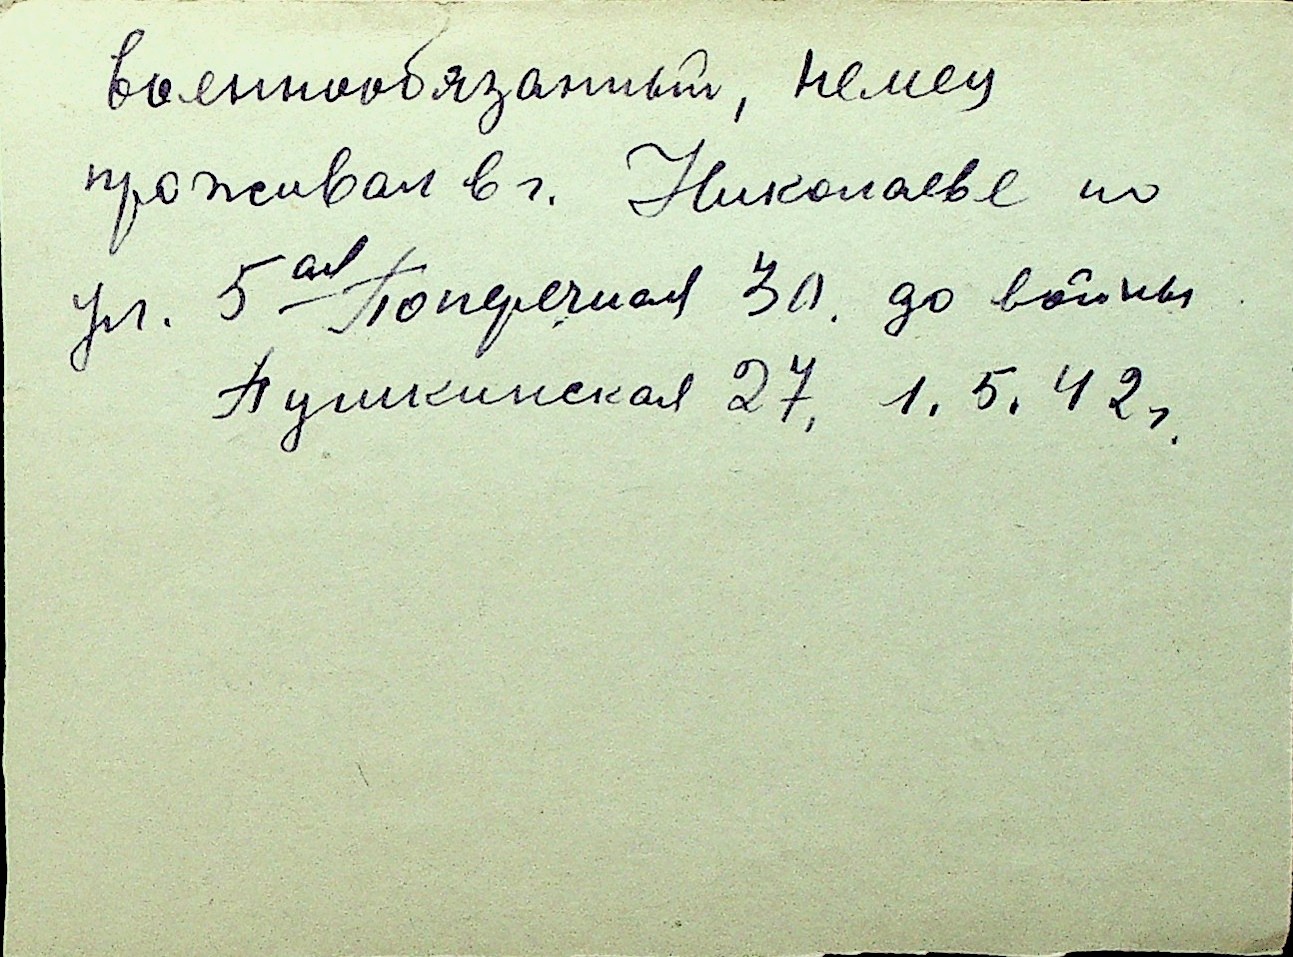 военнообязанный, немец
проживал в г. Николаеве по
ул. 5ая Поперечная 30. до войны
Пушкинская 27, 1.5.42г.